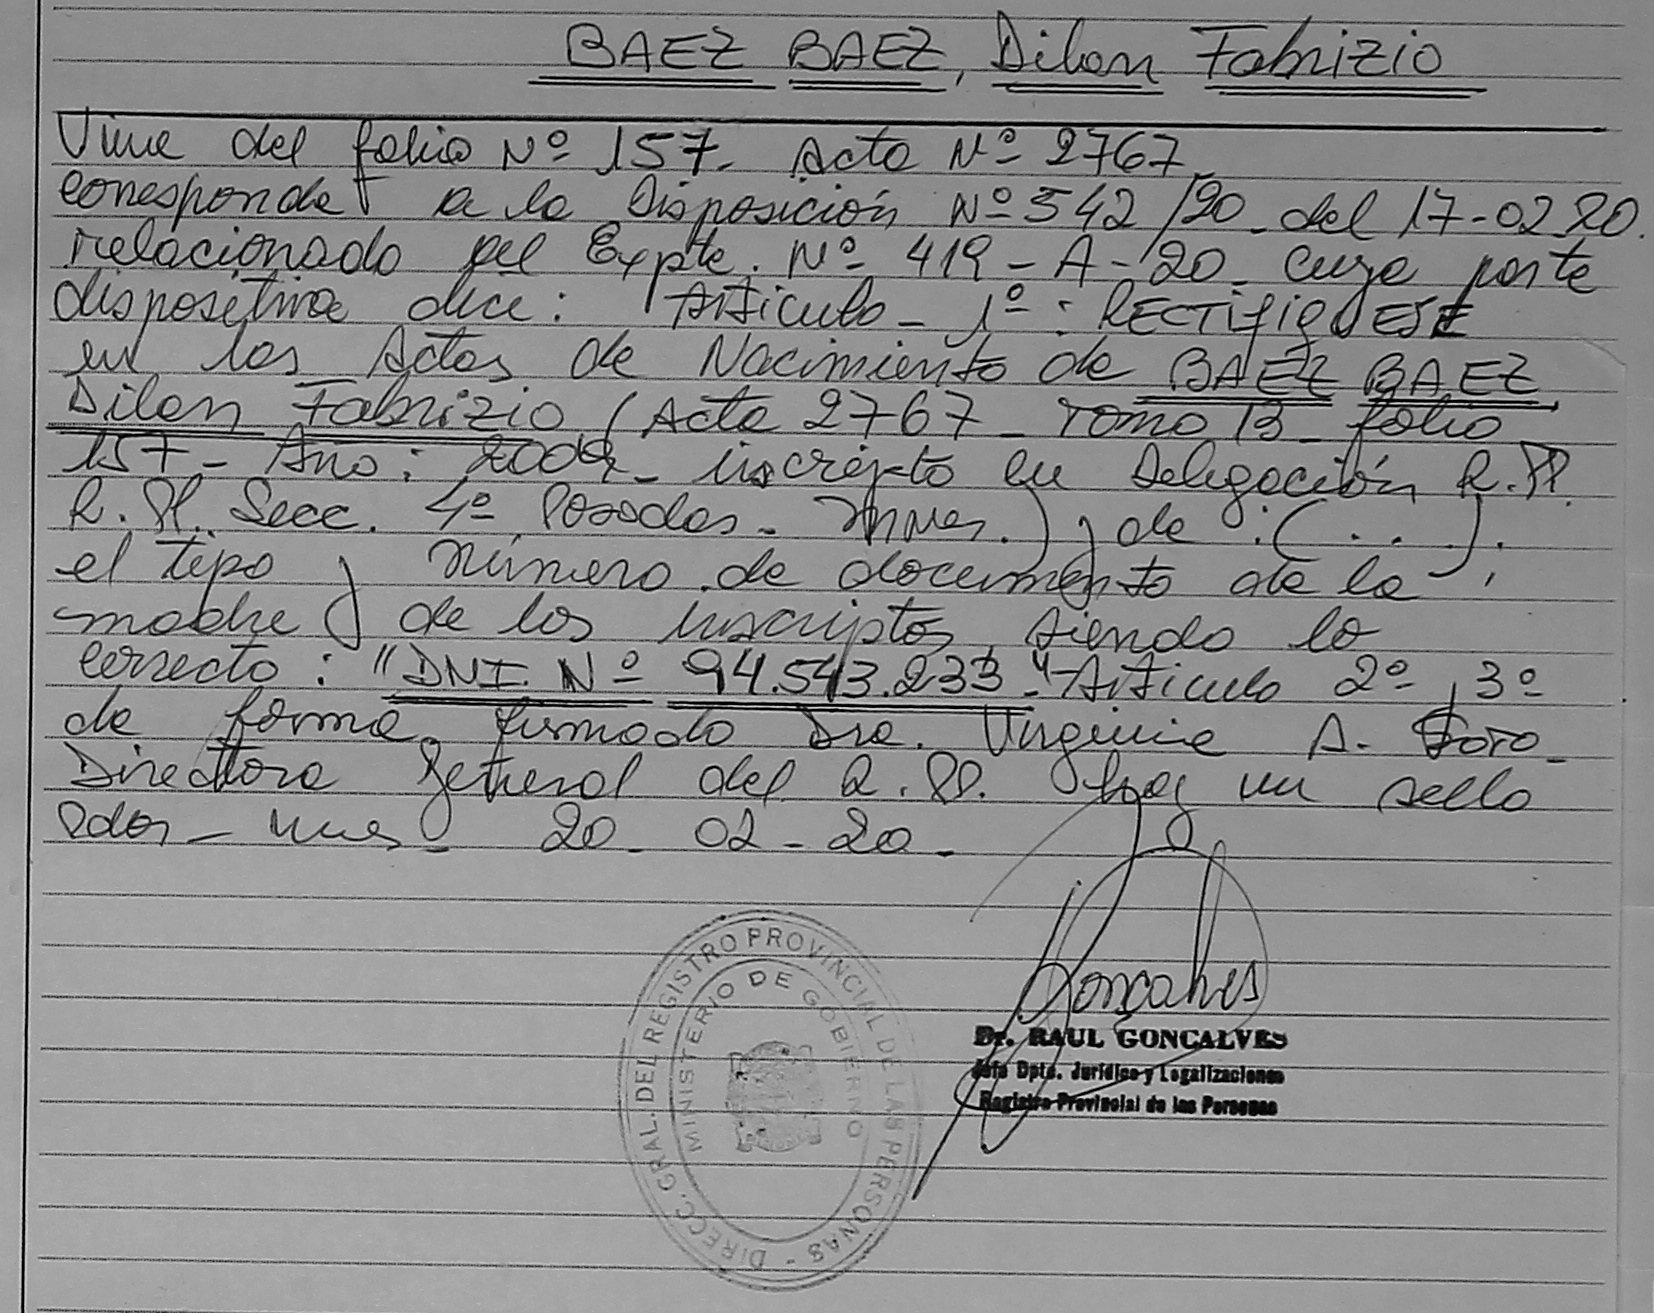 BAEZ BAEZ, Dilan Fabrizio
Viene del folio Nº 157. Acta Nº 2767
corresponde a la Disposición Nº 542/20 del 17-02-20.
relacionado al Expte. Nº 419-A-20 cuya parte
dispositiva dice: "Articulo - 1º: RECTIFIQUESE
en las Actas de Nacimiento de BAEZ BAEZ
Dilan Fabrizio (Acta 2767 - Tomo 13 - folio
157 - Año: inscripto en Delegación R.P.
R.P. Secc. 4º Posadas - Mnes.) y de: (...).
el tipo y número de documento de la
madre y de los inscriptos siendo lo
correcto: "DNI. Nº 94.543.233." Articulo 2º, 3º
de forma. firmado Dra. Virginia A.
Directora General del R.P. Hay un sello
Pdas - Mnes - 20 - 02 - 20 -
DIRECC. GRAL. DEL REGISTRO PROVINCIAL DE LAS PERSONAS -
MINISTERIO DE GOBIERNO
Goncalves
Dr. RAUL GONCALVES
Jefe Dpto. Jurídico y Legalizaciones
Registro Provincial de las Personas